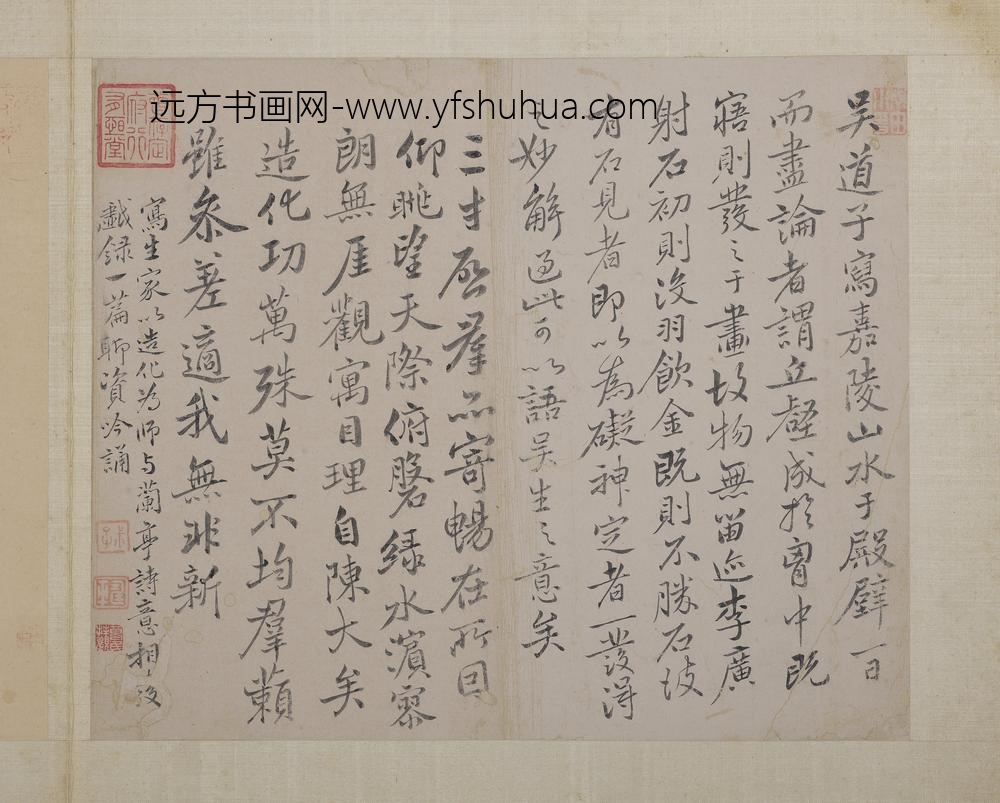 远方书画网-www.yfshuhua.com
吳道子寫嘉陵山水于殿壁一日
而盡論者謂丘壑成於胷中既
寤則發之于畫故物無留迹李廣
射石初則没羽飲金既則不勝石故
有石見者即以為礙神定者一發得
之妙解過此可以語吳生之意矣
三才啟羣品寄暢在所因
仰眺望天際俯磐綠水濵寥
朗無厓觀寓目理自陳大矣
造化功萬殊莫不均羣籟
雖叅差適我無非新
寫生家以造化為師与蘭亭詩意相
戲録一篇聊資吟誦